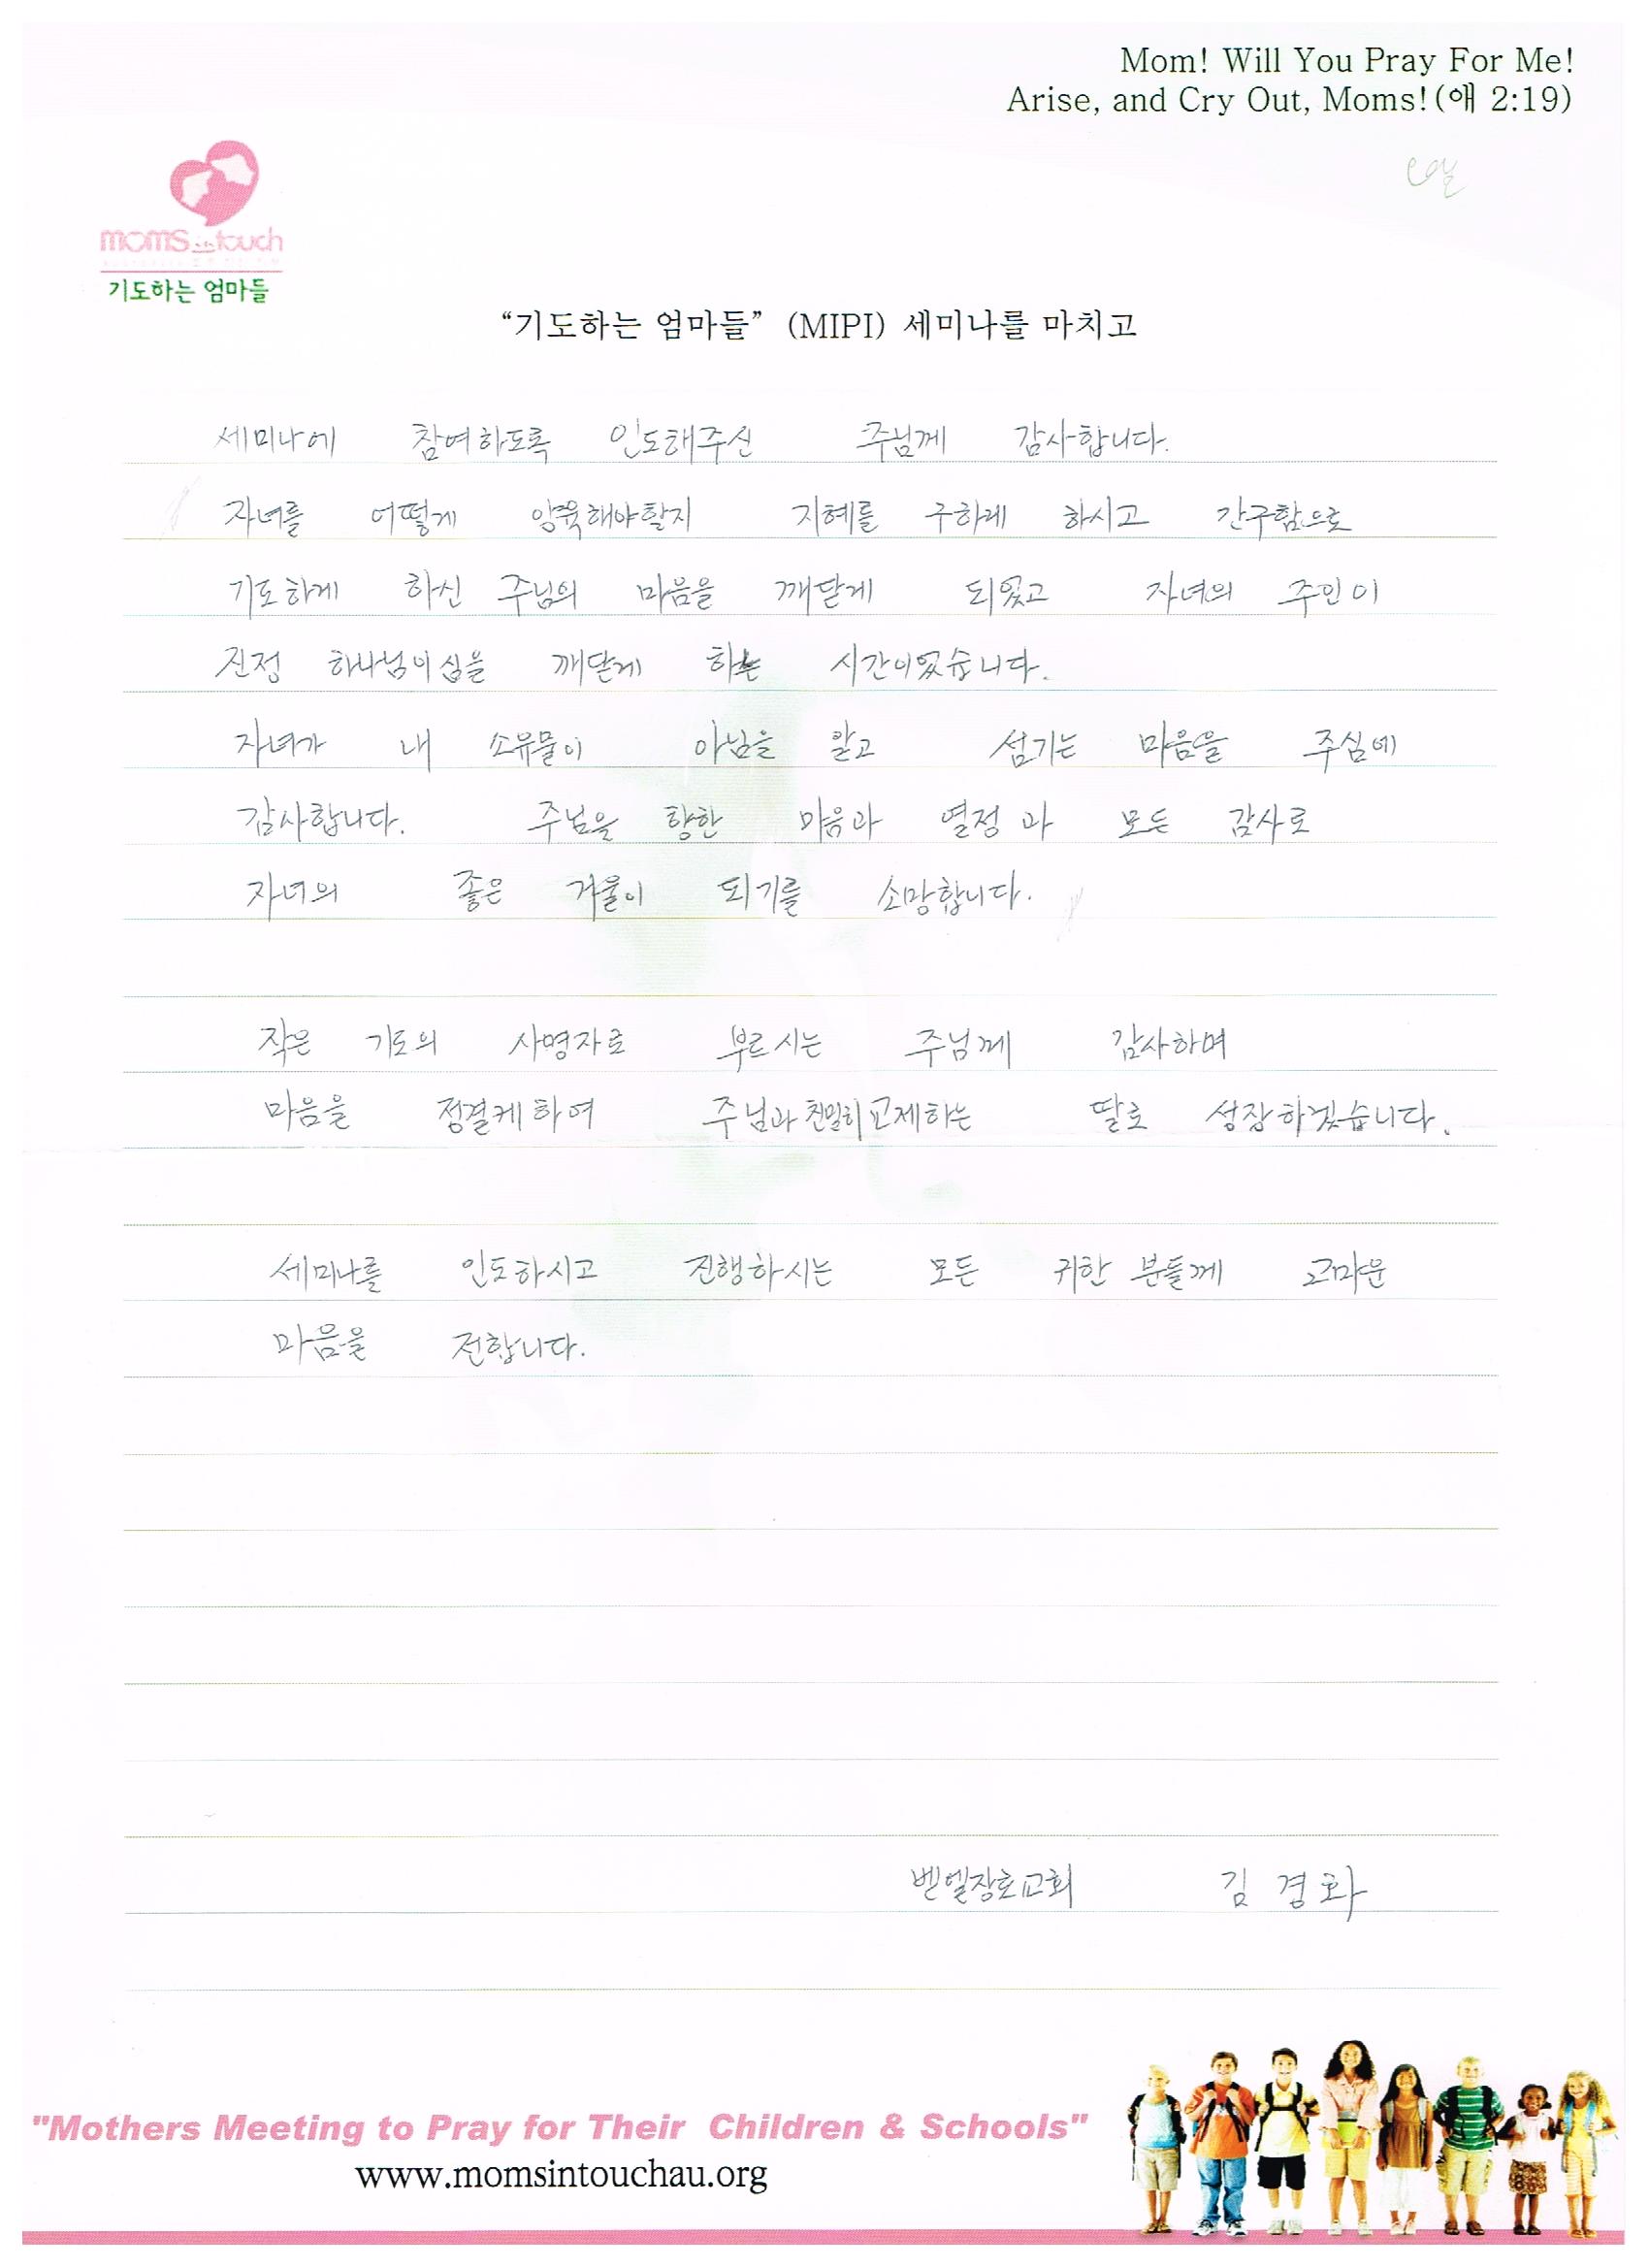 Mom! Will You Pray For Me!
Arise, and Cry Out, Moms!(애 2:19)
moms in touch
기도하는 엄마들
“기도하는 엄마들” (MIPI) 세미나를 마치고
세미나에 참여하도록 인도해주신 주님께 감사합니다.
자녀를 어떻게 양육해야할지 지혜를 구하게 하시고 간구함으로
기도하게 하신 주님의 마음을 깨닫게 되었고 자녀의 주인이
진정 하나님이심을 깨닫게 하는 시간이었습니다.
자녀가 내 소유물이 아님을 알고 섬기는 마음을 주심에
감사합니다. 주님을 향한 마음과 열정과 모든 감사로
자녀의 좋은 거울이 되기를 소망합니다.
작은 기도의 사명자로 부르시는 주님께 감사하며
마음을 정결케하여 주님과 친밀히 교제하는 딸로 성장하겠습니다.
세미나를 인도하시고 진행하시는 모든 귀한 분들께 고마운
마음을 전합니다.
벧엘장로교회 김경화
"Mothers Meeting to Pray for Their Children & Schools"
www.momsintouchau.org